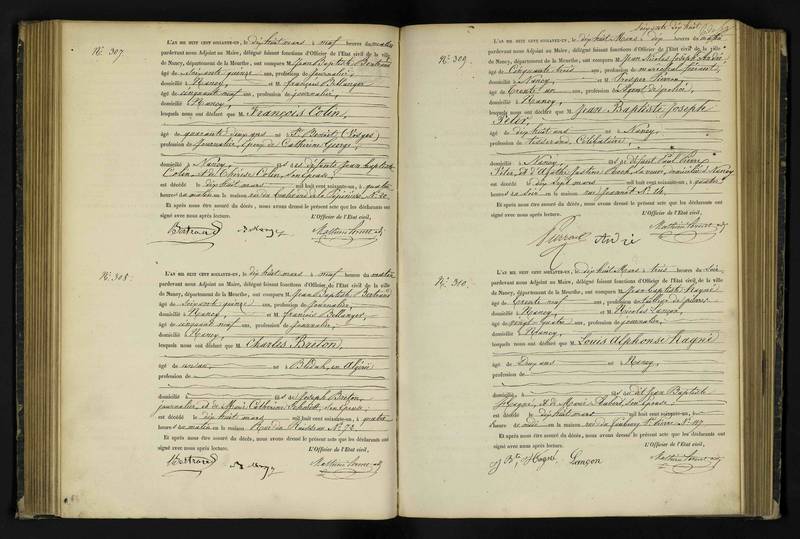 N.° 307.
L'AN MIL HUIT CENT SOIXANTE-UN, le dix huit mars à neuf heures du matin
pardevant nous Adjoint au Maire, délégué faisant fonctions d'Officier de l'Etat civil de la ville
de Nancy, département de la Meurthe, ont comparu M. Jean Baptiste Bertrand
âgé de soixante quinze ans, profession de journalier,
domicilié à Nancy, et M. François Bellanger
âgé de cinquante neuf ans, profession de journalier,
domicilié à Nancy,
lesquels nous ont déclaré que M. François Colin,
âgé de quarante deux ans né à St Benoit (Vosges)
profession de journalier, époux de Catherine George,
domicilié à Nancy, fils de défunts Jean Baptiste
Colin et de Thérèse Colin, son épouse,
est décédé le dix huit mars mil huit cent soixante-un, à quatre
heures du matin en la maison rue de la Pépinière N.° 20
Et après nous être assuré du décès, nous avons dressé le présent acte que les déclarants ont
signé avec nous après lecture. L'Officier de l'Etat civil,
Bertrand
N.° 308.
L'AN MIL HUIT CENT SOIXANTE-UN, le dix huit mars à neuf heures du matin
pardevant nous Adjoint au Maire, délégué faisant fonctions d'Officier de l'Etat civil de la ville
de Nancy, département de la Meurthe, ont comparu M. Jean Baptiste Bertrand
âgé de soixante quinze ans, profession de journalier,
domicilié à Nancy, et M. François Bellanger,
âgé de cinquante neuf ans, profession de journalier,
domicilié à Nancy,
lesquels nous ont déclaré que M. Charles Breton,
âgé de un an né à Blidah, en Algérie
profession de
domicilié à fils de Joseph Breton,
journalier, et de Marie Catherine son épouse,
est décédé le dix huit mars mil huit cent soixante-un, à quatre
heures du matin en la maison Rue du Ruisseau N.° 72
Et après nous être assuré du décès, nous avons dressé le présent acte que les déclarants ont
signé avec nous après lecture. L'Officier de l'Etat civil,
Bertrand
Soixante dix huit
N.° 309.
L'AN MIL HUIT CENT SOIXANTE-UN, le dix huit Mars à dix heures du matin
pardevant nous Adjoint au Maire, délégué faisant fonctions d'Officier de l'Etat civil de la ville
de Nancy, département de la Meurthe, ont comparu M. Jean Nicolas Joseph André
âgé de Cinquante trois ans, profession de maréchal ferrant,
domicilié à Nancy, et M. Prosper
âgé de trente un ans, profession de Agent de police,
domicilié à Nancy,
lesquels nous ont déclaré que M. Jean Baptiste Joseph
Peter,
âgé de dix huit ans né à Nancy,
profession de Tisserand, Célibataire,
domicilié à Nancy, fils de défunt Paul Pierre
Peter, et d'Agathe Justine sa veuve, domiciliée à Nancy
est décédé le dix sept mars mil huit cent soixante-un, à quatre
heures du soir en la maison rue Jeannot N.° 14
Et après nous être assuré du décès, nous avons dressé le présent acte que les déclarants ont
signé avec nous après lecture. L'Officier de l'Etat civil,
André
N.° 310.
L'AN MIL HUIT CENT SOIXANTE-UN, le dix huit Mars à trois heures du soir
pardevant nous Adjoint au Maire, délégué faisant fonctions d'Officier de l'Etat civil de la ville
de Nancy, département de la Meurthe, ont comparu M. Jean Baptiste Hagné
âgé de trente neuf ans, profession de tailleur de pierres
domicilié à Nancy, et M. Nicolas Lançon,
âgé de vingt quatre ans, profession de journalier,
domicilié à Nancy,
lesquels nous ont déclaré que M. Louis Alphonse Hagné
âgé de Deux ans né à Nancy,
profession de
domicilié à fils de dit Jean Baptiste
Hagné, et de Marie Aubert, son épouse
est décédé le dix huit mars mil huit cent soixante-un, à
heures du en la maison rue du faubourg St Pierre N.° 117
Et après nous être assuré du décès, nous avons dressé le présent acte que les déclarants ont
signé avec nous après lecture. L'Officier de l'Etat civil,
J Bte Hagné Lançon